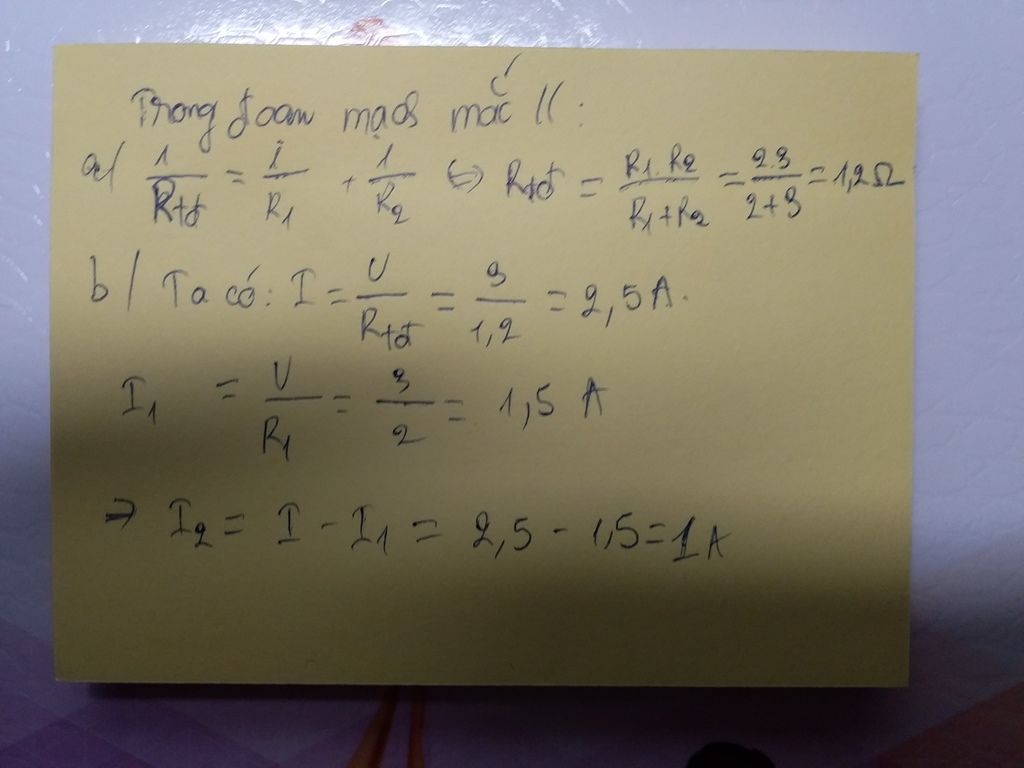 Trong đoạn mạch mắc //:
a/ 1/Rtđ = 1/R1 + 1/R2 <=> Rtđ = R1.R2/R1+R2 = 2.3/2+3 = 1,2Ω
b/ Ta có: I = U/Rtđ = 3/1,2 = 2,5A.
I1 = U/R1 = 3/2 = 1,5 A
=> I2 = I - I1 = 2,5 - 1,5 = 1A